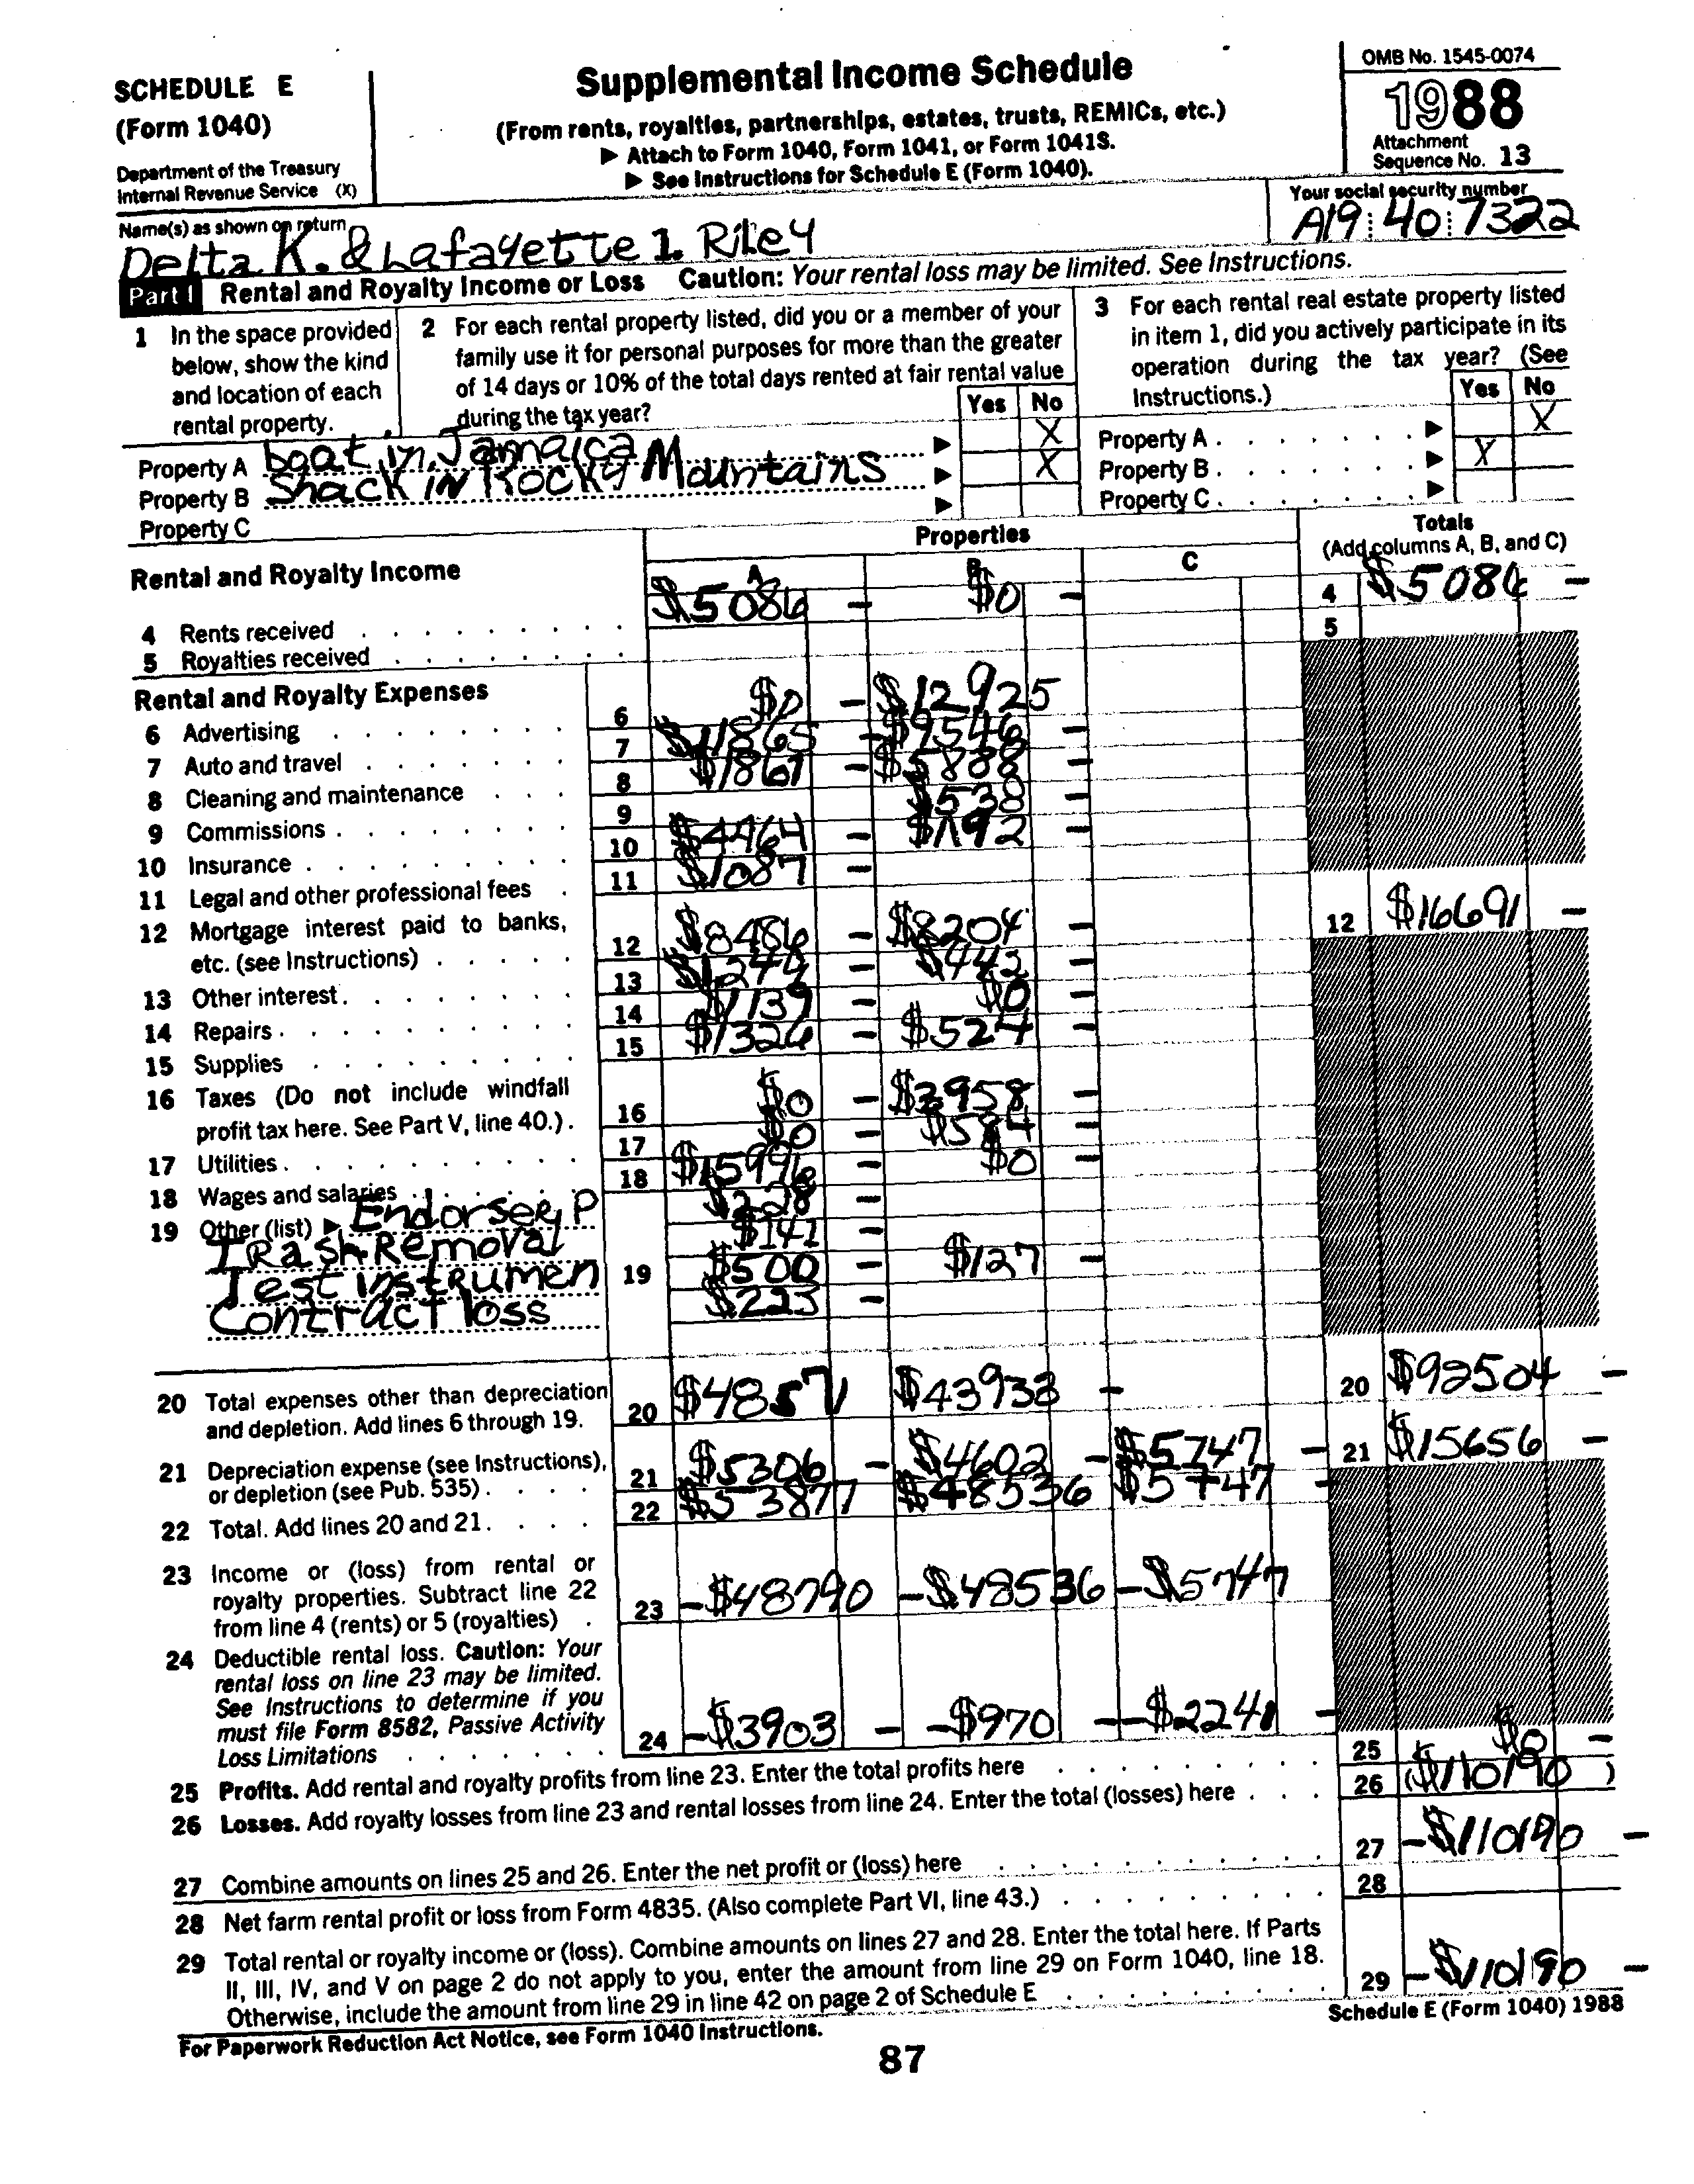 SCHEDULE E
(Form 1040)
Department of the Treasury
Internal Revenue Service (X)
Supplemental Income Schedule
(From rents, royalties, partnerships, estates, trusts, REMICs, etc.)
▶ Attach to Form 1040, Form 1041, or Form 1041S.
▶ See Instructions for Schedule E (Form 1040).
OMB No. 1545-0074
1988
Attachment
Sequence No. 13
Name(s) as shown on return
Delta K. & Lafayette I. Riley
Your social security number
A19 40 7322
Part I Rental and Royalty Income or Loss Caution: Your rental loss may be limited. See Instructions.
1 In the space provided
below, show the kind
and location of each
rental property.
2 For each rental property listed, did you or a member of your
family use it for personal purposes for more than the greater
of 14 days or 10% of the total days rented at fair rental value
during the tax year?
Yes No
3 For each rental real estate property listed
in item 1, did you actively participate in its
operation during the tax year? (See
Instructions.)
Yes No
Property A boat in Jamaica ▶ X Property A ▶ X
Property B Shack in Rocky Mountains ▶ X Property B ▶ X
Property C ▶ Property C ▶
Properties
Totals
(Add columns A, B, and C)
Rental and Royalty Income
A B C
4 Rents received $5086 – $0 – 4 $5086 –
5 Royalties received 5
Rental and Royalty Expenses
6 Advertising 6 $0 – $12925
7 Auto and travel 7 $11865 – $9546 –
8 Cleaning and maintenance 8 $1867 – $5888 –
9 Commissions 9 $538 –
10 Insurance 10 $4464 – $1192 –
11 Legal and other professional fees 11 $1087 –
12 Mortgage interest paid to banks,
etc. (see Instructions) 12 $8486 – $8204 – 12 $16691 –
13 Other interest 13 $1244 – $443 –
14 Repairs 14 $1139 – $0 –
15 Supplies 15 $1326 – $524 –
16 Taxes (Do not include windfall
profit tax here. See Part V, line 40.) 16 $0 – $3958 –
17 Utilities 17 $0 – $584 –
18 Wages and salaries 18 $15996 – $0 –
19 Other (list) ▶ Endorser, P $228 –
Trash Removal $141 –
Test instrumen 19 $500 – $127 –
Contract loss $223 –
20 Total expenses other than depreciation
and depletion. Add lines 6 through 19. 20 $48571 $43933 – 20 $92504 –
21 Depreciation expense (see Instructions),
or depletion (see Pub. 535) 21 $5306 – $4602 – $5747 – 21 $15656 –
22 Total. Add lines 20 and 21 22 $53877 $48536 $5747 –
23 Income or (loss) from rental or
royalty properties. Subtract line 22
from line 4 (rents) or 5 (royalties) 23 –$48790 –$48536 –$5747
24 Deductible rental loss. Caution: Your
rental loss on line 23 may be limited.
See Instructions to determine if you
must file Form 8582, Passive Activity
Loss Limitations 24 –$3903 – –$970 – –$2241 –
25 Profits. Add rental and royalty profits from line 23. Enter the total profits here 25 $0 –
26 Losses. Add royalty losses from line 23 and rental losses from line 24. Enter the total (losses) here 26 ($110190)
27 Combine amounts on lines 25 and 26. Enter the net profit or (loss) here 27 –$110190 –
28 Net farm rental profit or loss from Form 4835. (Also complete Part VI, line 43.) 28
29 Total rental or royalty income or (loss). Combine amounts on lines 27 and 28. Enter the total here. If Parts
II, III, IV, and V on page 2 do not apply to you, enter the amount from line 29 on Form 1040, line 18.
Otherwise, include the amount from line 29 in line 42 on page 2 of Schedule E 29 –$110190 –
For Paperwork Reduction Act Notice, see Form 1040 Instructions.
Schedule E (Form 1040) 1988
87